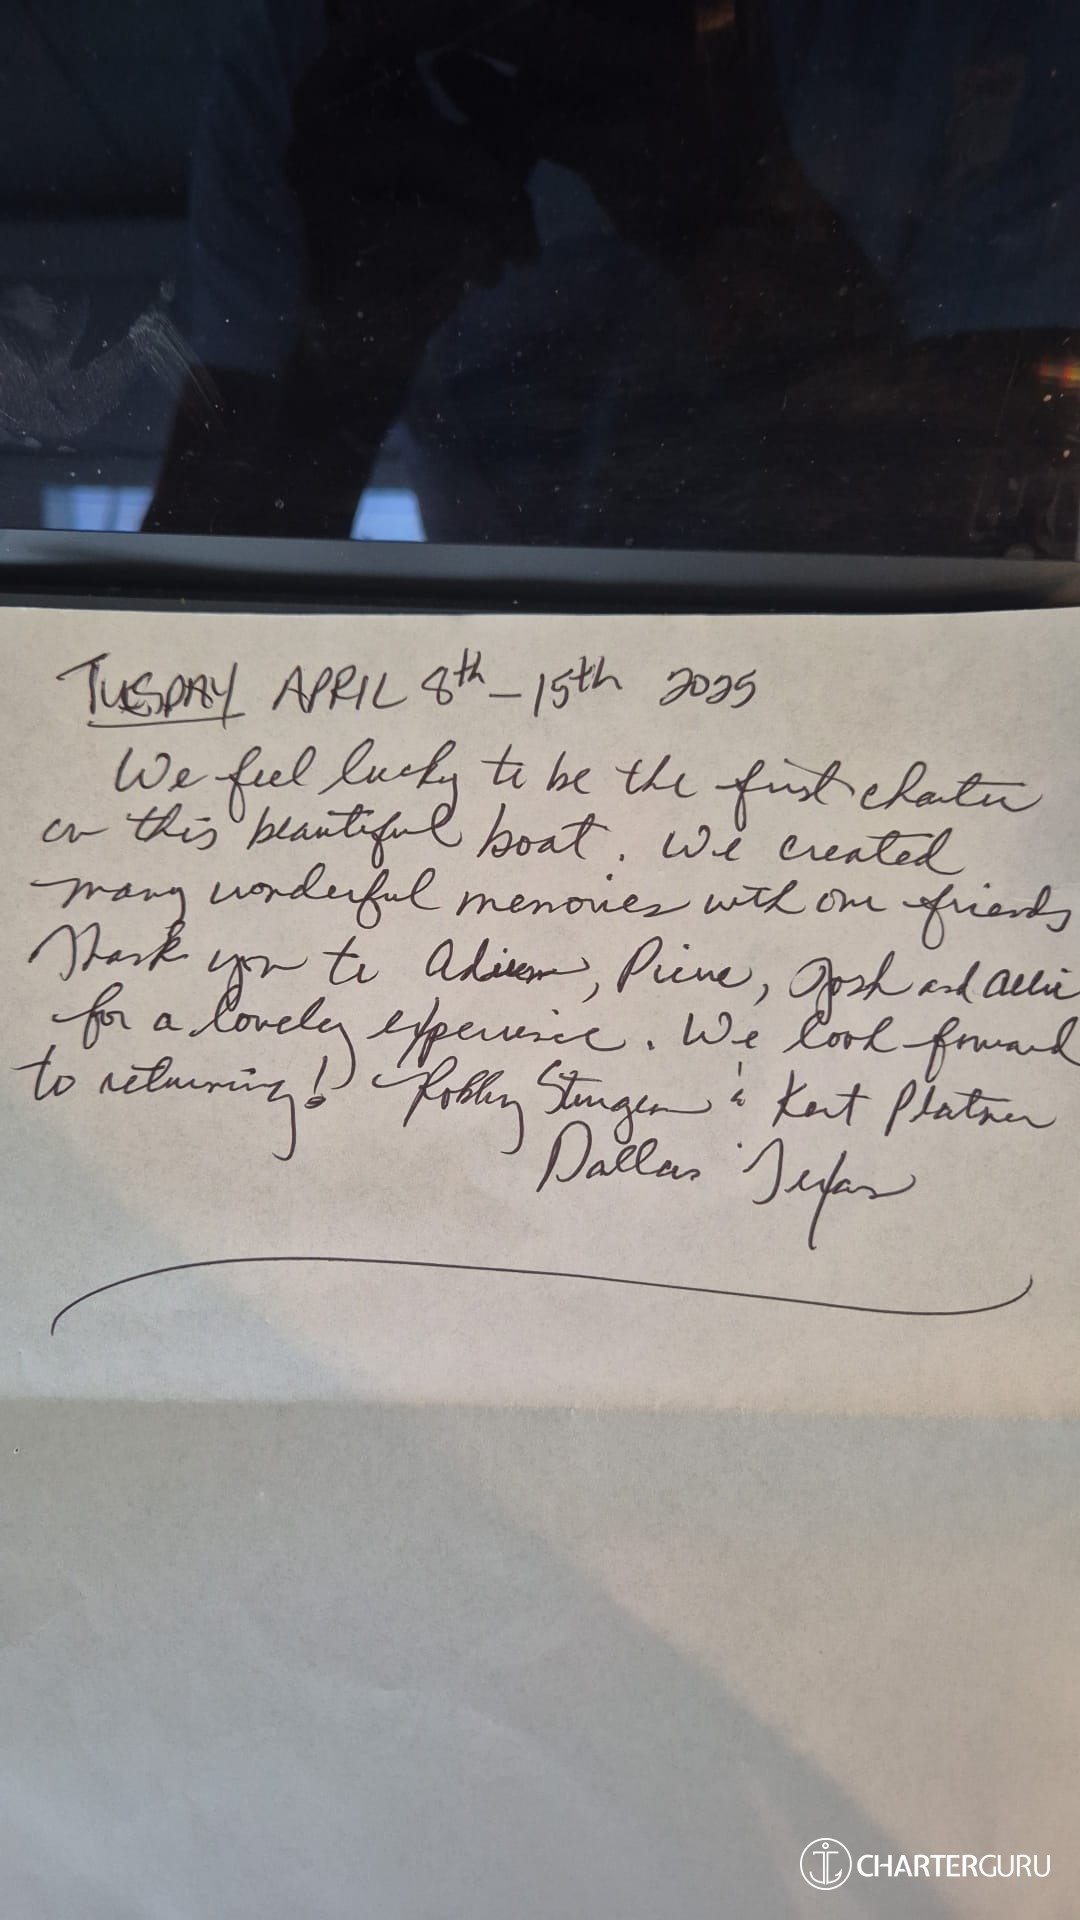 TUESDAY APRIL 8th - 15th 2025
We feel lucky to be the first charter
on this beautiful boat. We created
many wonderful memories with our friends
Thank you to Pierre, Josh and Allie
for a lovely experience. We look forward
to returning! Robby Sturgeon & Kert Platner
Dallas Texas
CHARTERGURU